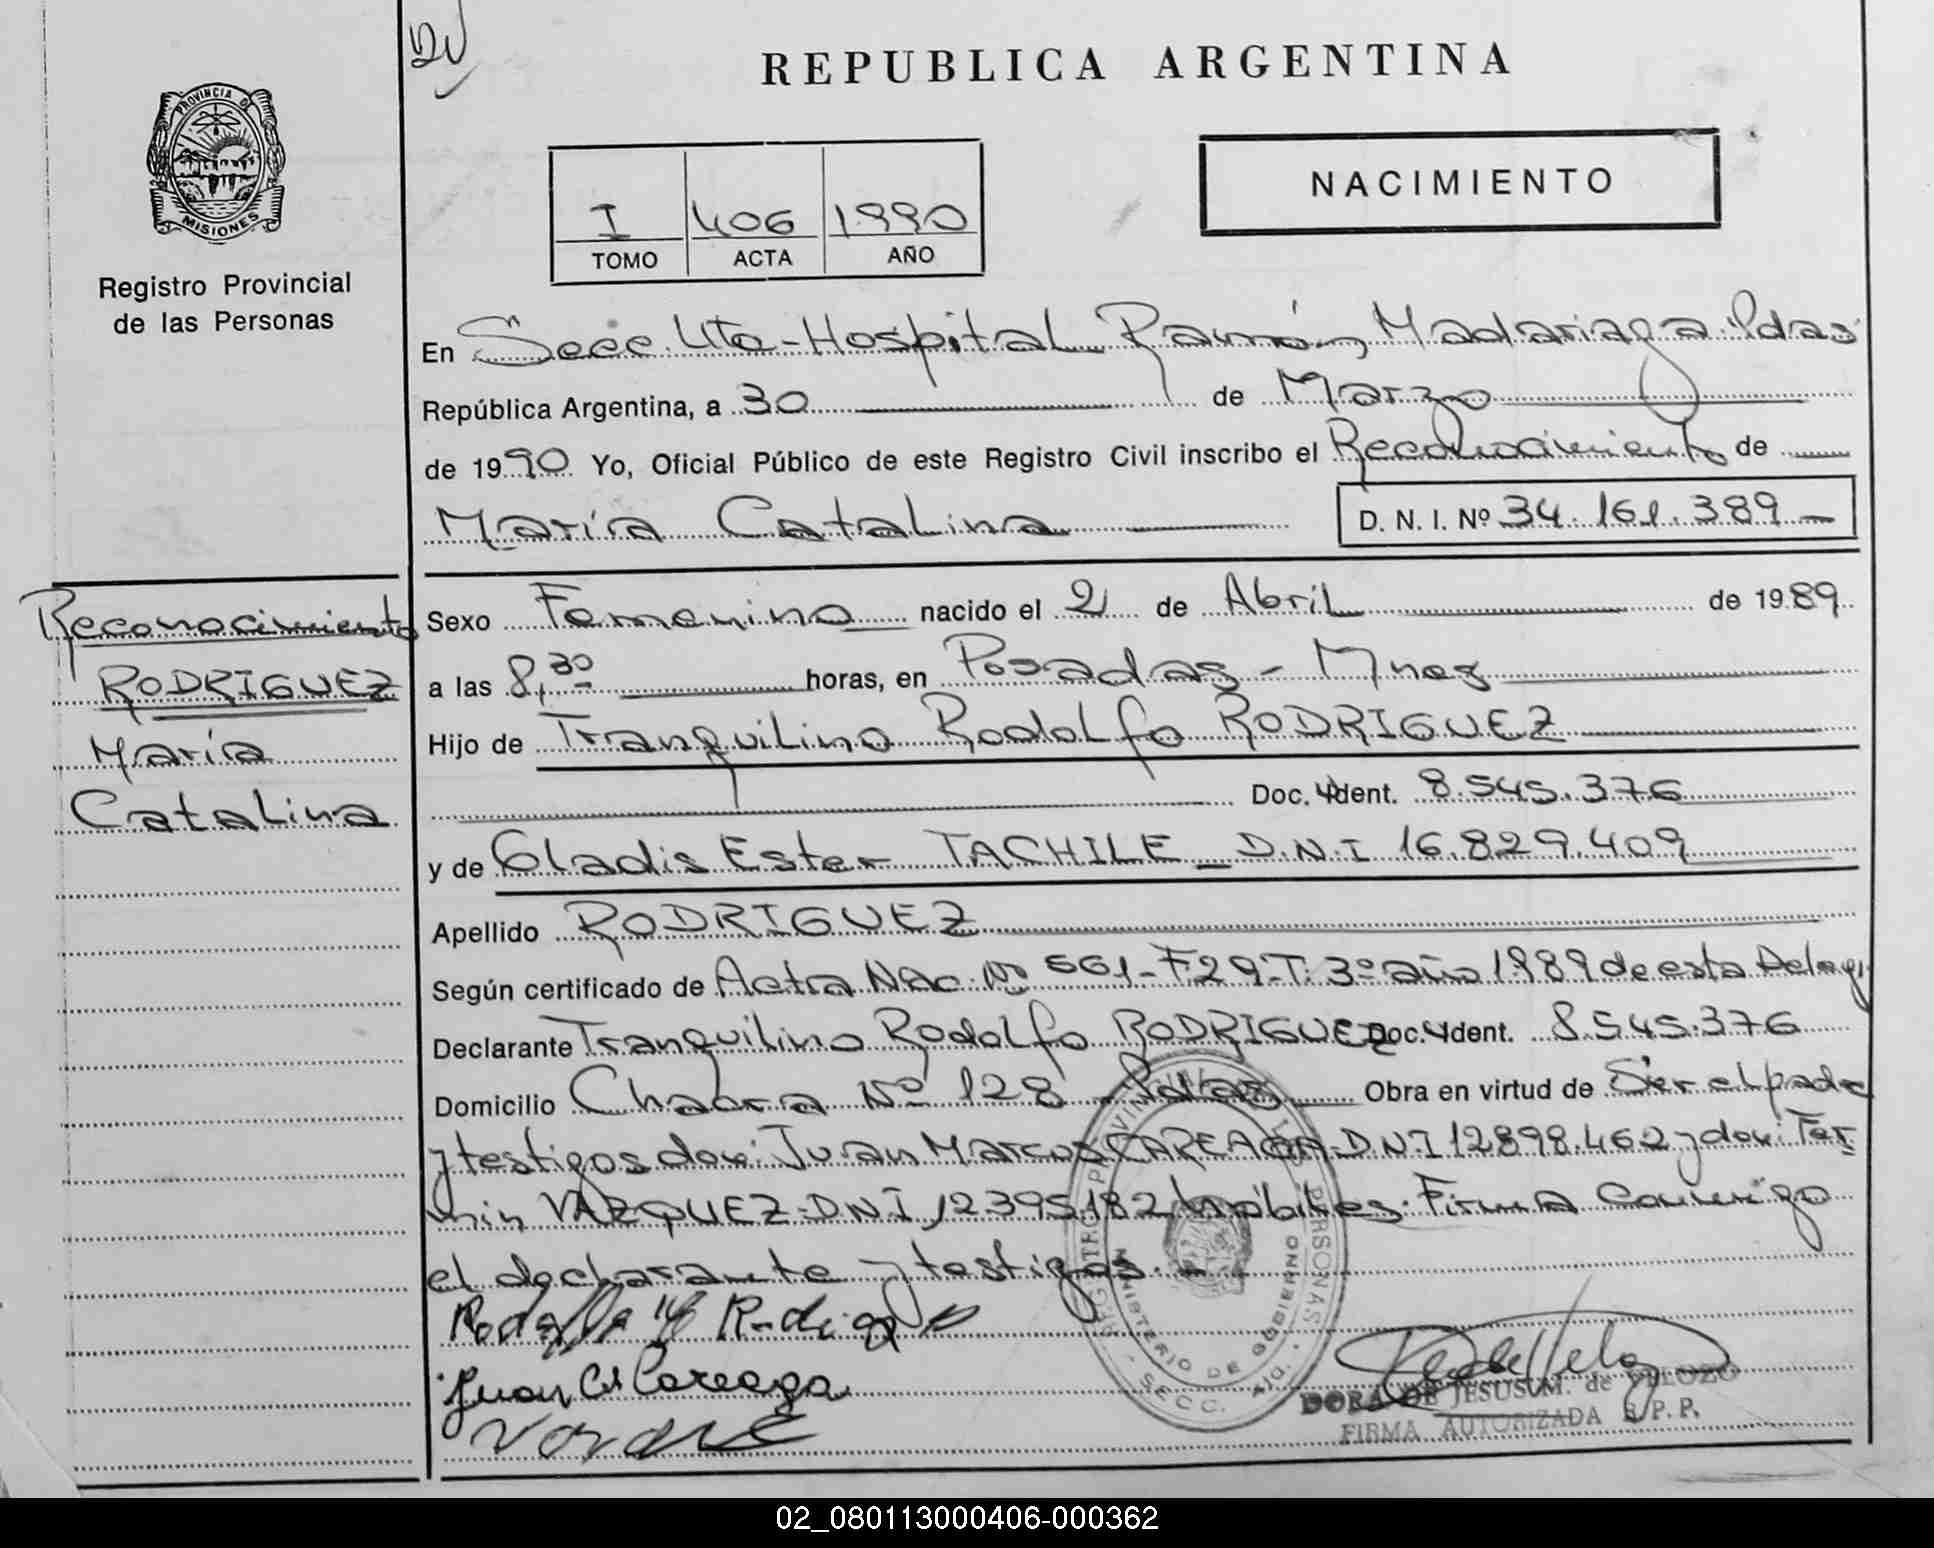 REPUBLICA ARGENTINA
PROVINCIA DE
MISIONES
Registro Provincial
de las Personas
NACIMIENTO
I 406 1990
TOMO ACTA AÑO
En Secc. 4ta - Hospital Ramón Madariaga Pdas
República Argentina, a 30 de Marzo
de 1990 Yo, Oficial Público de este Registro Civil inscribo el Reconocimiento de
María Catalina D. N. I. Nº 34.161.389 -
Reconocimiento
RODRIGUEZ
María
Catalina
Sexo Femenino nacido el 21 de Abril de 1989
a las 8,30 horas, en Posadas - Mnes
Hijo de Tranquilino Rodolfo RODRIGUEZ
Doc. Ident. 8.545.376
y de Gladis Ester TACHILE - D.N.I 16.829.409
Apellido RODRIGUEZ
Según certificado de Acta Nac. Nº 561 - F 29 - T. 3º año 1989 de esta Deleg
Declarante Tranquilino Rodolfo RODRIGUEZ Doc. Ident. 8.545.376
Domicilio Chacra Nº 128 Pdas Obra en virtud de Ser el padre
y testigos don: Juan Marcos CAREAGA - D.N.I 12.898.462 y don: Fer
min VAZQUEZ - D.N.I 12.395.182 hábiles. Firma conmigo
el declarante y testigos. -
Juan Careaga
MINISTERIO DE GOBIERNO
DORA DE JESUS M. de VELOZO
FIRMA AUTORIZADA R.P.P.
02_080113000406-000362